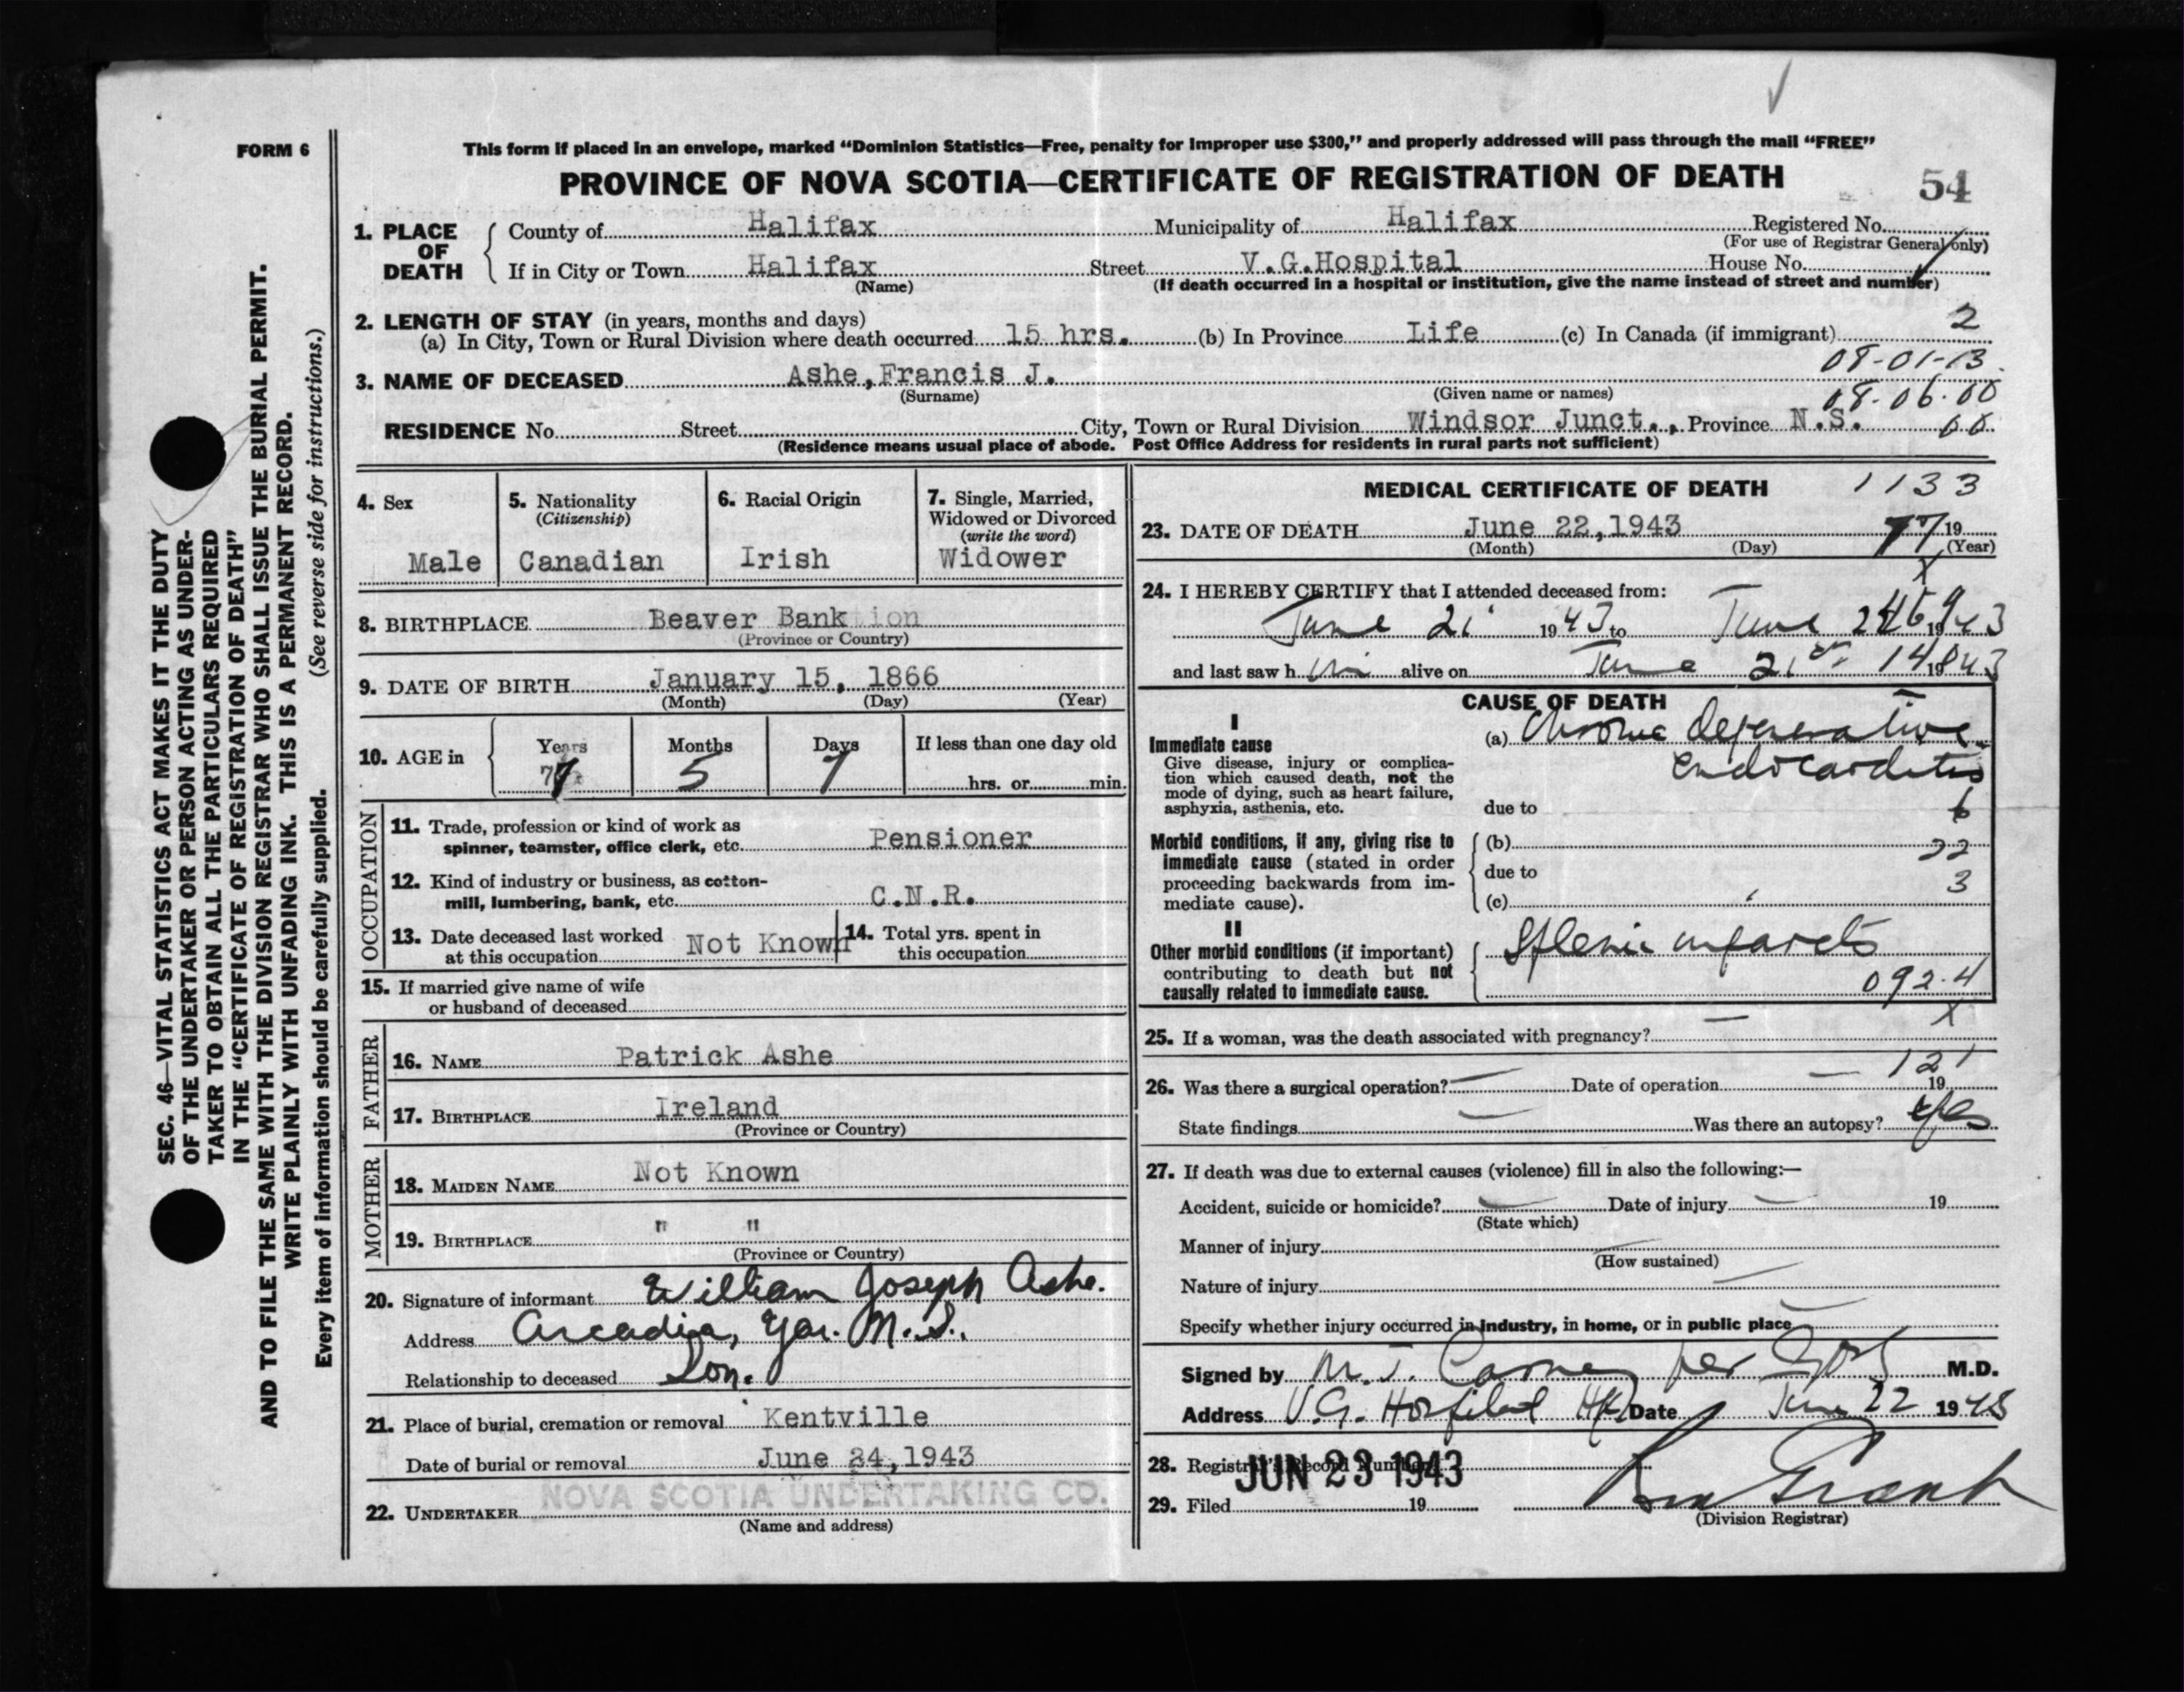 FORM 6
This form if placed in an envelope, marked “Dominion Statistics—Free, penalty for improper use $300,” and properly addressed will pass through the mail “FREE”
PROVINCE OF NOVA SCOTIA—CERTIFICATE OF REGISTRATION OF DEATH
54
1. PLACE OF DEATH
County of Halifax Municipality of Halifax Registered No.
(For use of Registrar General only)
If in City or Town Halifax Street V.G.Hospital House No.
(Name) (If death occurred in a hospital or institution, give the name instead of street and number)
2. LENGTH OF STAY (in years, months and days)
(a) In City, Town or Rural Division where death occurred 15 hrs. (b) In Province Life (c) In Canada (if immigrant) 2
08-01-13
3. NAME OF DECEASED Ashe, Francis J.
(Surname) (Given name or names) 08-06-00
RESIDENCE No. Street City, Town or Rural Division Windsor Junct., Province N.S.
(Residence means usual place of abode. Post Office Address for residents in rural parts not sufficient)
4. Sex
Male
5. Nationality
(Citizenship)
Canadian
6. Racial Origin
Irish
7. Single, Married,
Widowed or Divorced
(write the word)
Widower
8. BIRTHPLACE Beaver Bank
(Province or Country)
9. DATE OF BIRTH January 15, 1866
(Month) (Day) (Year)
10. AGE in Years Months Days If less than one day old
77 5 7 hrs. or min.
OCCUPATION
11. Trade, profession or kind of work as
spinner, teamster, office clerk, etc. Pensioner
12. Kind of industry or business, as cotton-
mill, lumbering, bank, etc. C.N.R.
13. Date deceased last worked
at this occupation Not Known
14. Total yrs. spent in
this occupation
15. If married give name of wife
or husband of deceased
FATHER
16. NAME Patrick Ashe
17. BIRTHPLACE Ireland
(Province or Country)
MOTHER
18. MAIDEN NAME Not Known
19. BIRTHPLACE " "
(Province or Country)
20. Signature of informant William Joseph Ashe.
Address Arcadia, Yar. N.S.
Relationship to deceased Son.
21. Place of burial, cremation or removal Kentville
Date of burial or removal June 24, 1943
22. UNDERTAKER NOVA SCOTIA UNDERTAKING CO.
(Name and address)
MEDICAL CERTIFICATE OF DEATH 1133
23. DATE OF DEATH June 22, 1943 77 19
(Month) (Day) (Year)
X
24. I HEREBY CERTIFY that I attended deceased from:
June 21 1943 to June
and last saw h im alive on June 21st
CAUSE OF DEATH
I
Immediate cause
Give disease, injury or complica-
tion which caused death, not the
mode of dying, such as heart failure,
asphyxia, asthenia, etc.
(a) Chronic degenerative
endocarditis
due to 6
Morbid conditions, if any, giving rise to
immediate cause (stated in order
proceeding backwards from im-
mediate cause).
(b) 22
due to
3
(c)
II
Other morbid conditions (if important)
contributing to death but not
causally related to immediate cause.
Splenic infarcts
092.4
X
25. If a woman, was the death associated with pregnancy? —
121
26. Was there a surgical operation? — Date of operation — 19
State findings — Was there an autopsy? Yes
27. If death was due to external causes (violence) fill in also the following:—
Accident, suicide or homicide? — Date of injury — 19
(State which)
Manner of injury —
(How sustained)
Nature of injury —
Specify whether injury occurred in industry, in home, or in public place —
Signed by M. J. Carney per M.D.
Address V.G. Hospital Hfx Date June 22 1943
28. Registrar's Record Number
JUN 23 1943
29. Filed 19
(Division Registrar)
SEC. 46—VITAL STATISTICS ACT MAKES IT THE DUTY
OF THE UNDERTAKER OR PERSON ACTING AS UNDER-
TAKER TO OBTAIN ALL THE PARTICULARS REQUIRED
IN THE “CERTIFICATE OF REGISTRATION OF DEATH”
AND TO FILE THE SAME WITH THE DIVISION REGISTRAR WHO SHALL ISSUE THE BURIAL PERMIT.
WRITE PLAINLY WITH UNFADING INK. THIS IS A PERMANENT RECORD.
Every item of information should be carefully supplied. (See reverse side for instructions.)